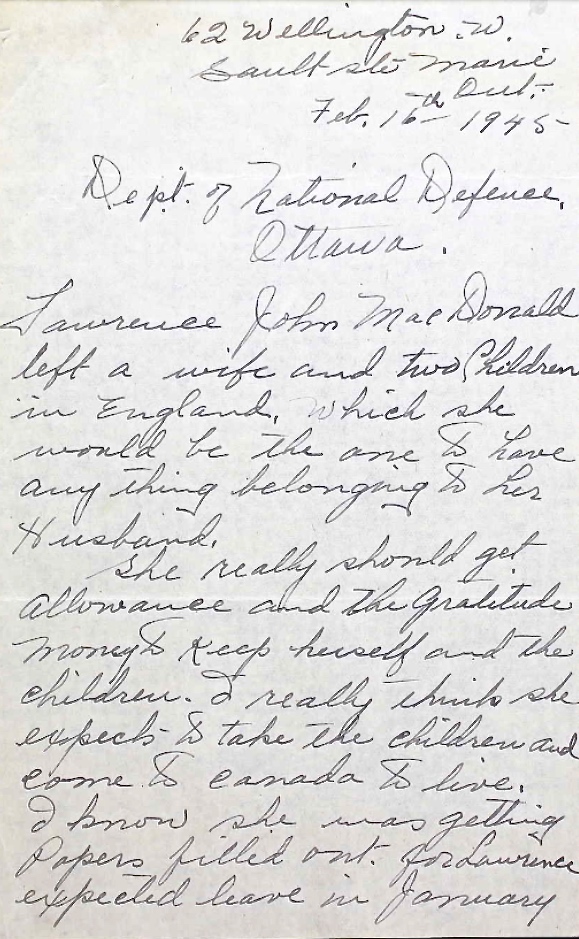 62 Wellington. W.
Sault ste Marie
Ont.
Feb. 16th 1945
Dept. of National Defence.
Ottawa.
Lawrence John MacDonald
left a wife and two Children
in England. Which she
would be the one to have
any thing belonging to her
Husband.
She really should get
allowance and the Gratitude
money to keep herself and the
children. I really think she
expects to take the children and
come to Canada to live.
I know she was getting
Papers filled out. for Lawrence
expected leave in January